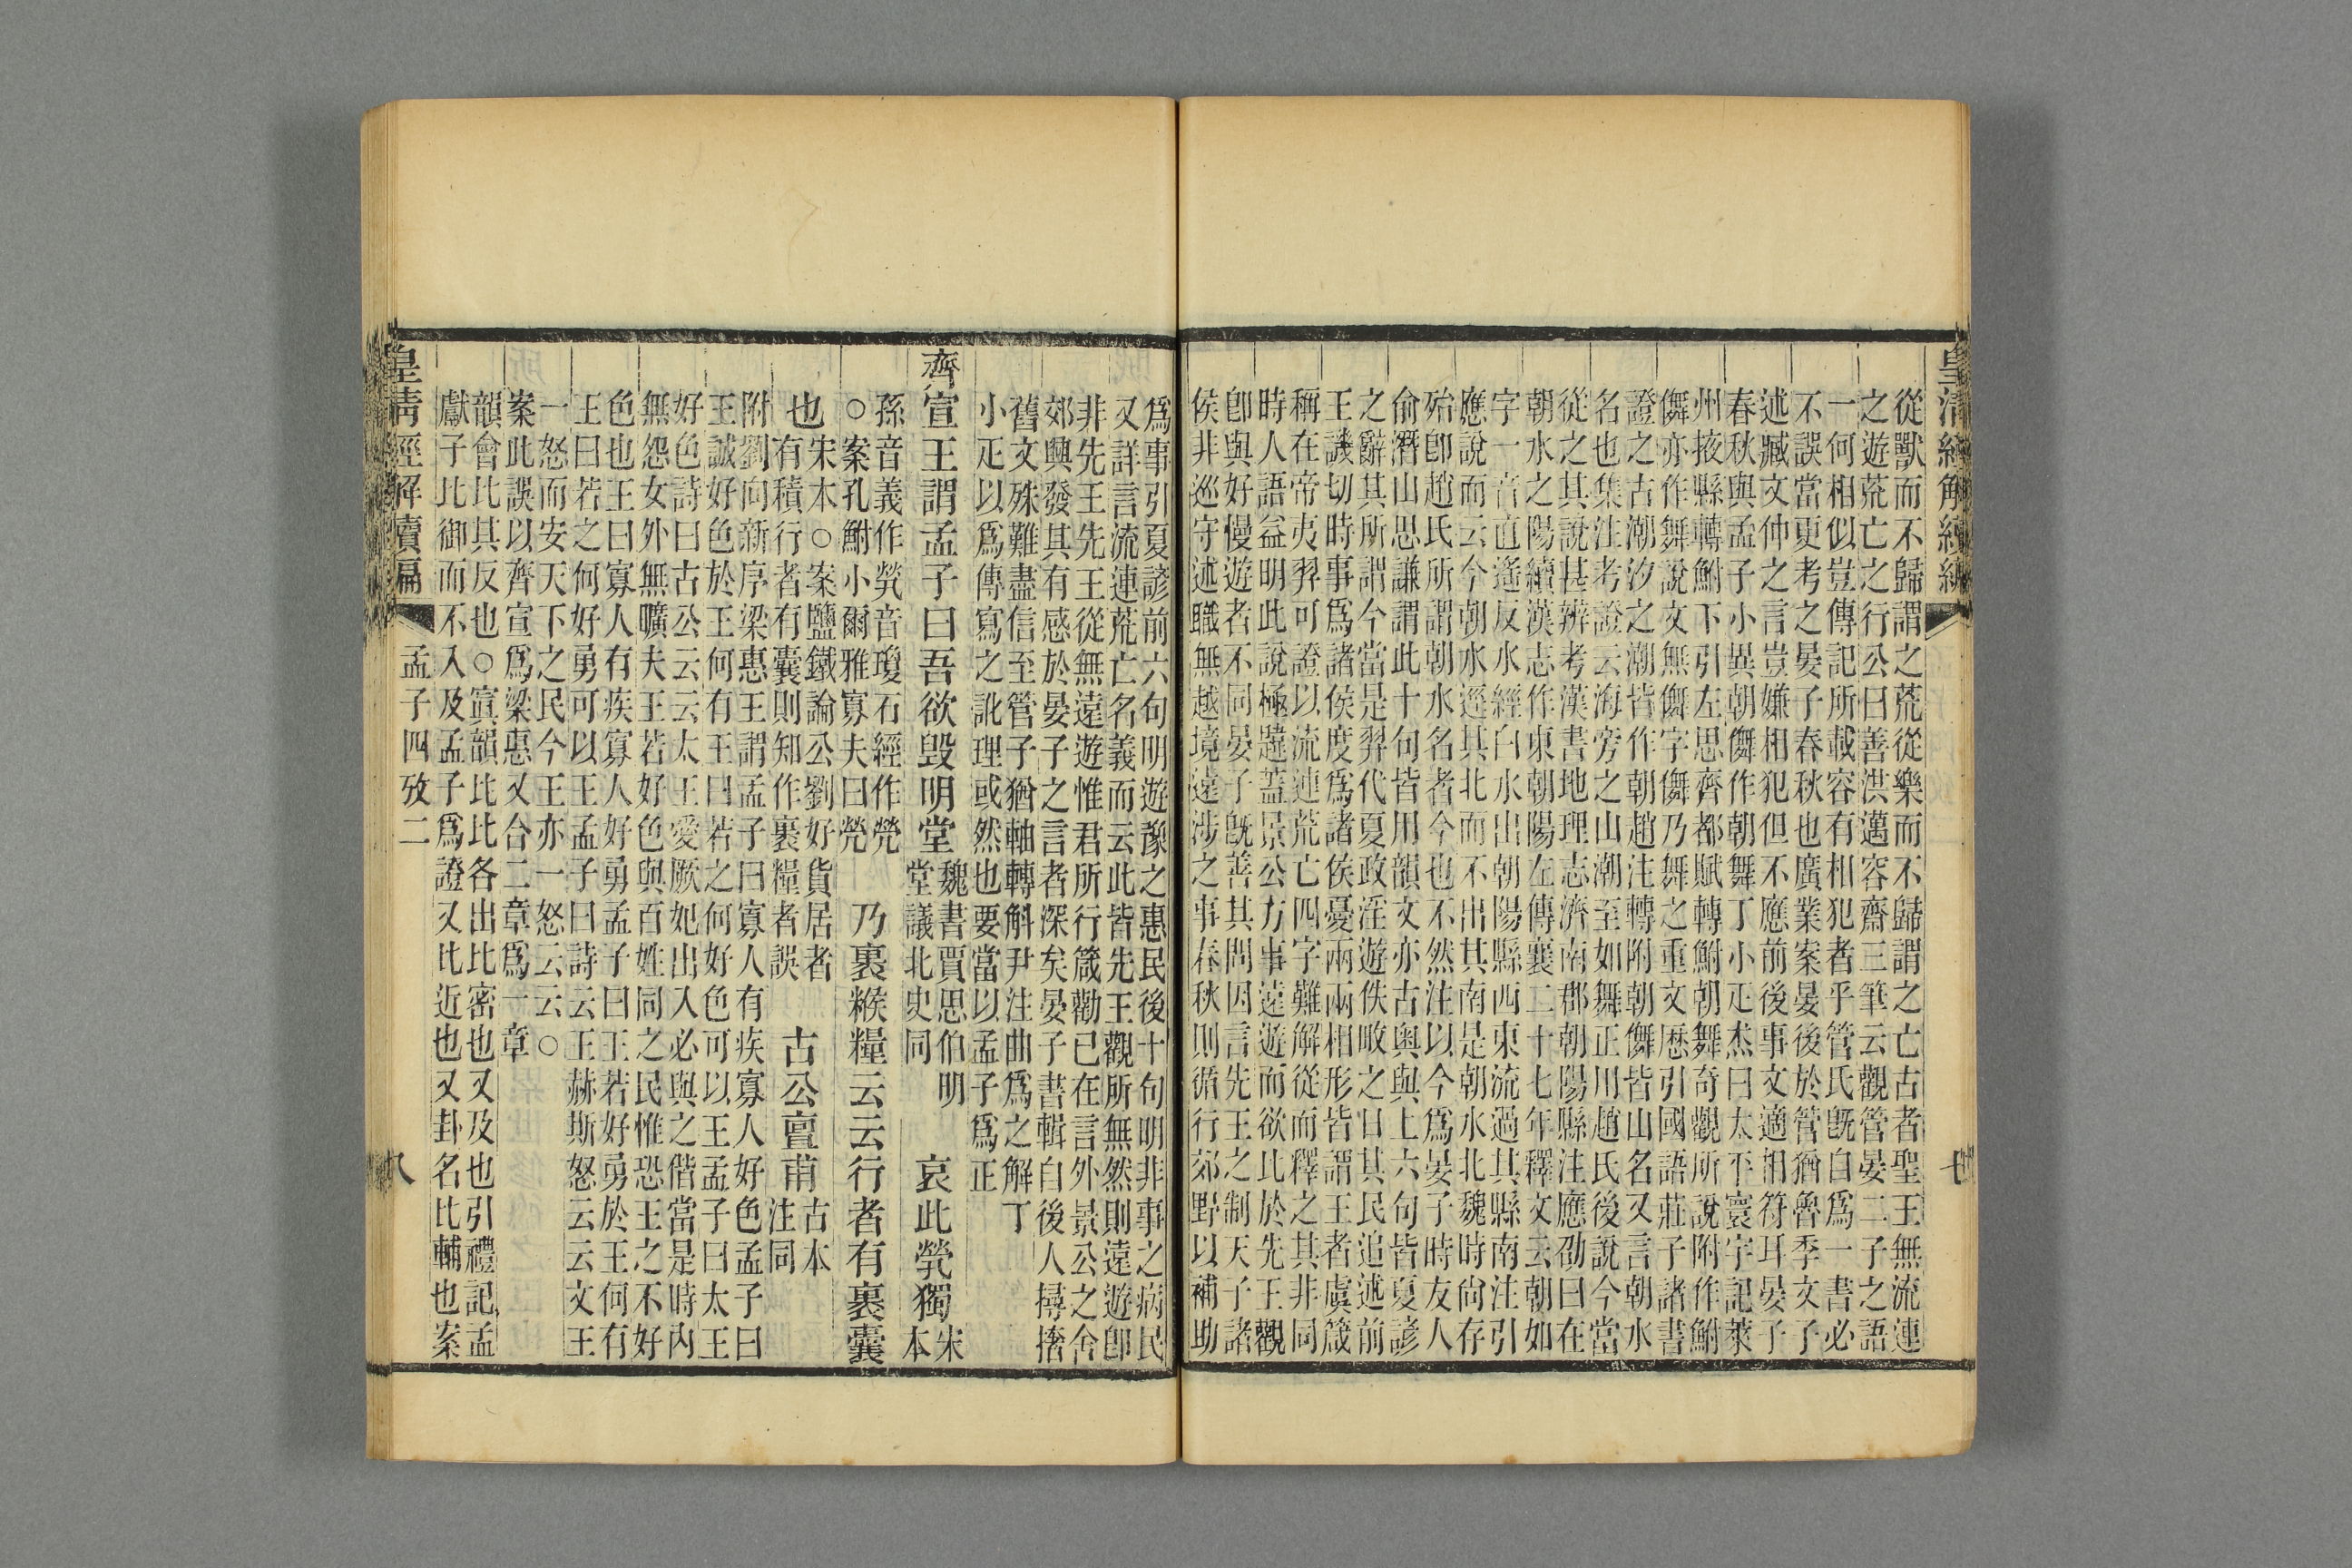 皇清經解續編
七
從獸而不歸謂之荒從樂而不歸謂之亡古者聖王無流連
之遊荒亡之行公曰善洪邁容齋三筆云觀管晏二子之語
一何相似豈傳記所載容有相犯者乎管氏旣自爲一書必
不誤當更考之晏子春秋也廣業案晏後於管猶魯季文子
述臧文仲之言豈嫌相犯但不應前後事文適相符耳晏子
春秋與孟子小異朝儛作朝舞丁小疋杰曰太平寰宇記萊
州掖縣轉鮒下引左思齊都賦轉鮒朝舞奇觀所說附作鮒
儛亦作舞說文無儛字儛乃舞之重文歷引國語莊子諸書
證之古潮汐之潮皆作朝趙注轉附朝儛皆山名又言朝水
名也集注考證云海旁之山潮至如舞正用趙氏後說今當
從之其說甚辨考漢書地理志濟南郡朝陽縣注應劭曰在
朝水之陽續漢志作東朝陽左傳襄二十七年釋文云朝如
字一音直遙反水經白水出朝陽縣西東流過其縣南注引
應說而云今朝水逕其北而不出其南是朝水北魏時尚存
殆卽趙氏所謂朝水名者今也不然注以今爲晏子時友人
俞潛山思謙謂此十句皆用韻文亦古與與上六句皆夏諺
之辭其所謂今當是羿代夏政淫遊佚畋之日其民追述前
王譏切時事爲諸侯度爲諸侯憂兩兩相形皆謂王者虞箴
稱在帝夷羿可證以流連荒亡四字難解從而釋之其非同
時人語益明此說極韙蓋景公方事遠遊而欲比於先王觀
卽與好慢遊者不同晏子旣善其問因言先王之制天子諸
侯非巡守述職無越境遠涉之事春秋則循行郊野以補助
爲事引夏諺前六句明遊豫之惠民後十句明非事之病民
又詳言流連荒亡名義而云此皆先王觀所無然則遠遊卽
非先王先王從無遠遊惟君所行箴勸已在言外景公之舍
郊興發其有感於晏子之言者深矣晏子書輯自後人撏撦
舊文殊難盡信至管子猶軸轉斛尹注曲爲之解丁
小疋以爲傳寫之訛理或然也要當以孟子爲正
齊宣王謂孟子曰吾欲毁明堂
魏書賈思伯明
堂議北史同
哀此煢獨
宋
本
孫音義作煢音瓊石經作㷀
○案孔鮒小爾雅寡夫曰㷀
乃裹糇糧云云行者有裹囊
也
宋本○案鹽鐵論公劉好貨居者
有積行者有囊則知作裹糧者誤
古公亶甫
古本
注同
附劉向新序梁惠王謂孟子曰寡人有疾寡人好色孟子曰
王誠好色於王何有王曰若之何好色可以王孟子曰太王
好色詩曰古公云云太王愛厥妃出入必與之偕當是時內
無怨女外無曠夫王若好色與百姓同之民惟恐王之不好
色也王曰寡人有疾寡人好勇孟子曰王若好勇於王何有
王曰若之何好勇可以王孟子曰詩云王赫斯怒云云文王
一怒而安天下之民今王亦一怒云云○
案此誤以齊宣爲梁惠又合二章爲一章
韻會比其反也○寘韻比比各出比密也又及也引禮記孟
獻子比御而不入及孟子爲證又比近也又卦名比輔也案
皇清經解續編
孟子四攷二
八